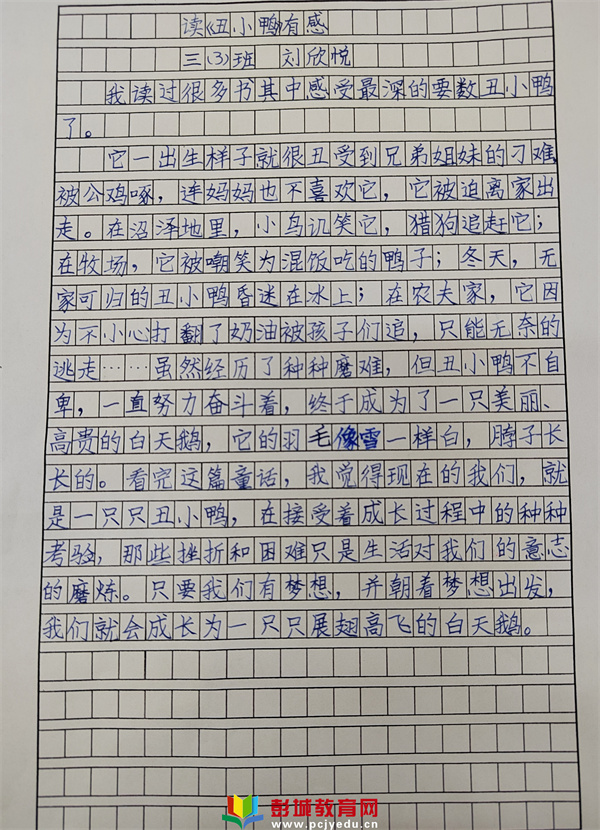 读《丑小鸭》有感
三(3)班 刘欣悦
我读过很多书其中感受最深的要数丑小鸭
了。
它一出生样子就很丑受到兄弟姐妹的刁难
被公鸡啄，连妈妈也不喜欢它，它被迫离家出
走。在沼泽地里，小鸟讥笑它，猎狗追赶它；
在牧场，它被嘲笑为混饭吃的鸭子；冬天，无
家可归的丑小鸭昏迷在冰上；在农夫家，它因
为不小心打翻了奶油被孩子们追，只能无奈的
逃走……虽然经历了种种磨难，但丑小鸭不自
卑，一直努力奋斗着，终于成为了一只美丽、
高贵的白天鹅，它的羽毛像雪一样白，脖子长
长的。看完这篇童话，我觉得现在的我们，就
是一只只丑小鸭，在接受着成长过程中的种种
考验，那些挫折和困难只是生活对我们的意志
的磨炼。只要我们有梦想，并朝着梦想出发，
我们就会成长为一只只展翅高飞的白天鹅。
彭城教育网
www.pcjyedu.cn